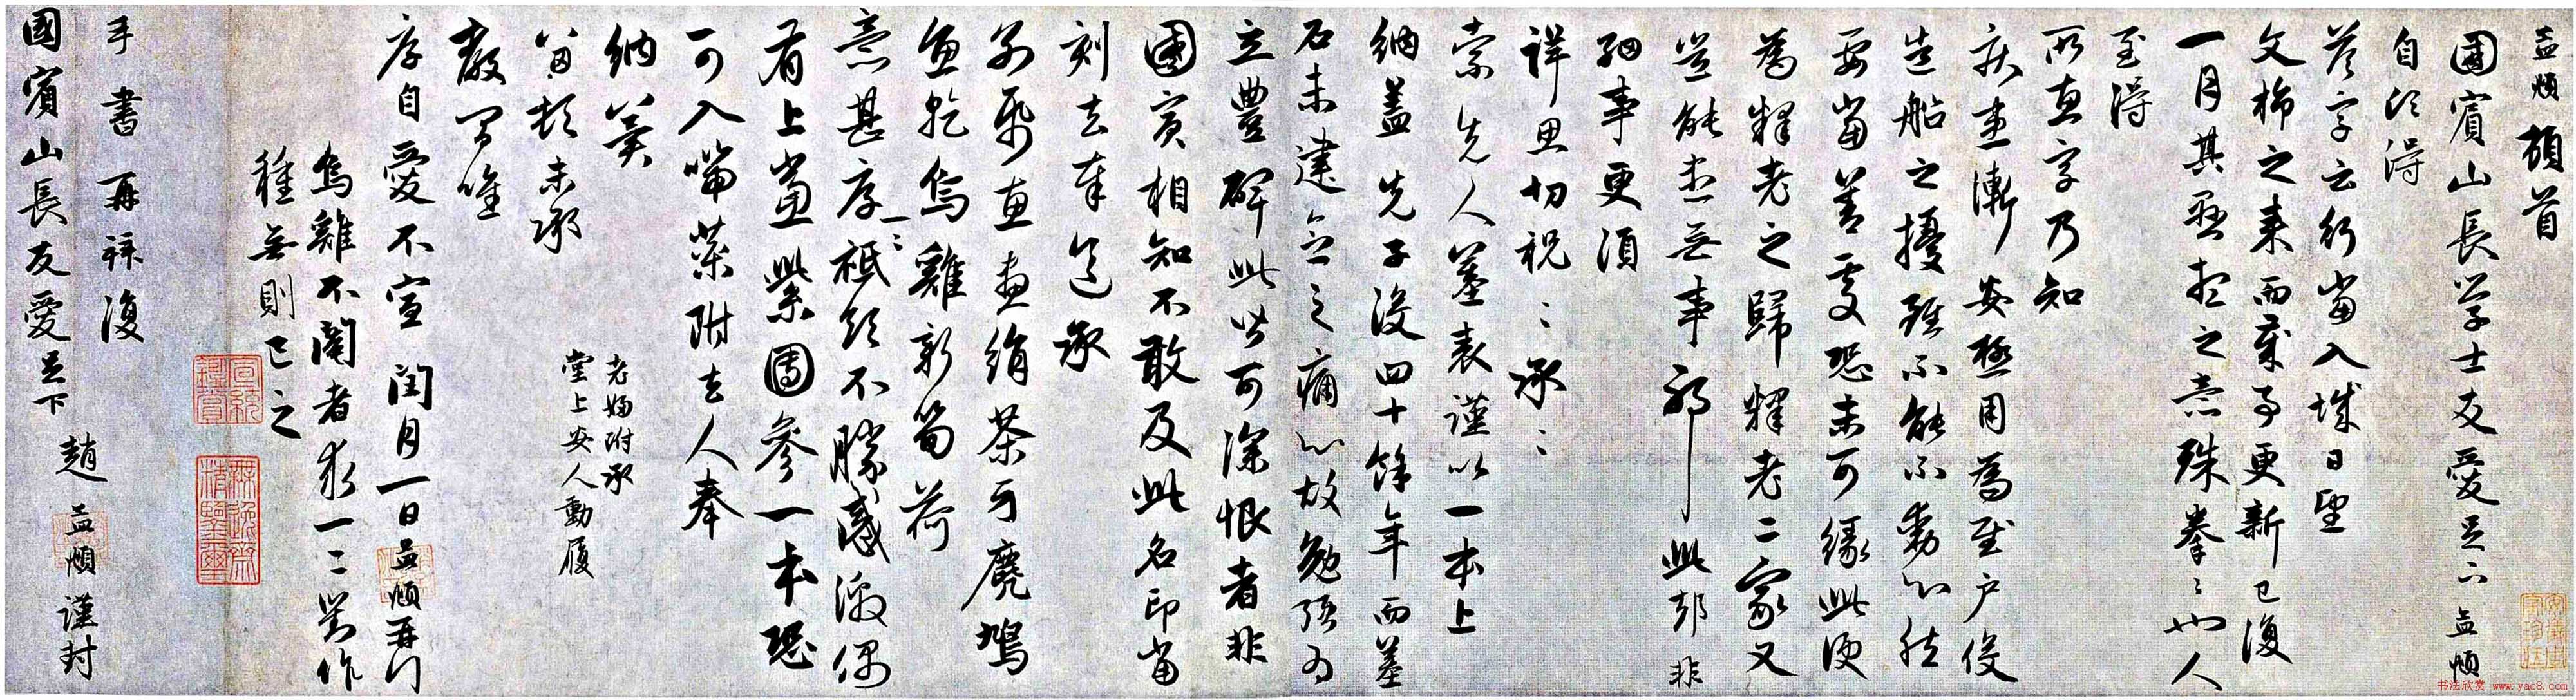 孟頫頓首
國賓山長學士友愛足下孟頫
自頃得
答字云行當入城日望
文旆之來而歲事更新已復
一月其懸想之意殊拳〻也人
至得
所惠字乃知
疾患漸安極用為慰戶役
造船之擾雖不能不動心然
要當善處恐未可緣此便
為釋老之歸釋老二家又
豈能盡無事邪此却非
細事更須
詳思切祝〻〻承
索先人墓表謹以一本上
納蓋先子沒四十餘年而墓
石未建念之痛心故勉強為
立豐碑此皆可深恨者非
國賓相知不敢及此名印當
刻去奉送承
惠畫絹茶牙麂鳩
魚乾烏雞新筍荷
意甚厚一〻祗領不勝感激偶
有上黨紫團參一本恐
可入藥附去人奉
納冀
留頓未承
老婦附承
堂上安人動履
教間唯
厚自愛不宣 閏月一日孟頫再拜
烏雞不闔者求一二對作
種無則已之
手書再拜復
國賓山長友愛足下 趙孟頫謹封
书法欣赏 www.yac8.com